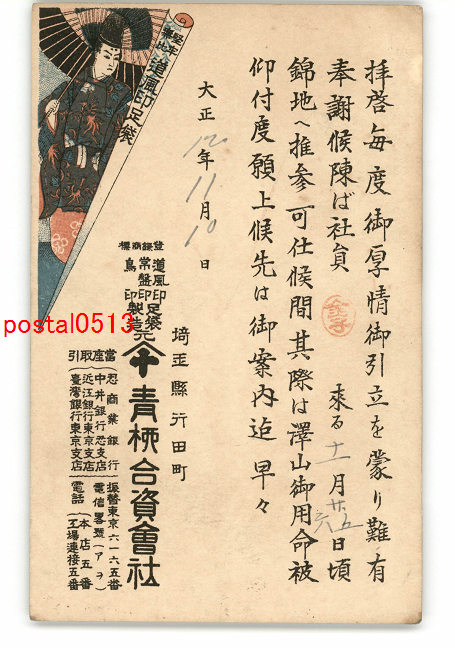 拝啓毎度御厚情御引立を蒙り難有
奉謝候陳ば社員 来る十一月廿五六日頃
錦地へ推参可仕候間其際は澤山御用命被
仰付度願上候先は御案内迄早々
大正12年11月10日
道風印足袋
登録商標
道風印足袋
常盤印足袋
鳥印製造元
埼玉縣行田町
青柳合資會社
當座取引
忍商業銀行
中井銀行忍支店
近江銀行東京支店
臺灣銀行東京支店
振替東京六一六五番
電信畧號(アヲ)
電話
本店五番
工場連接五番
postal0513